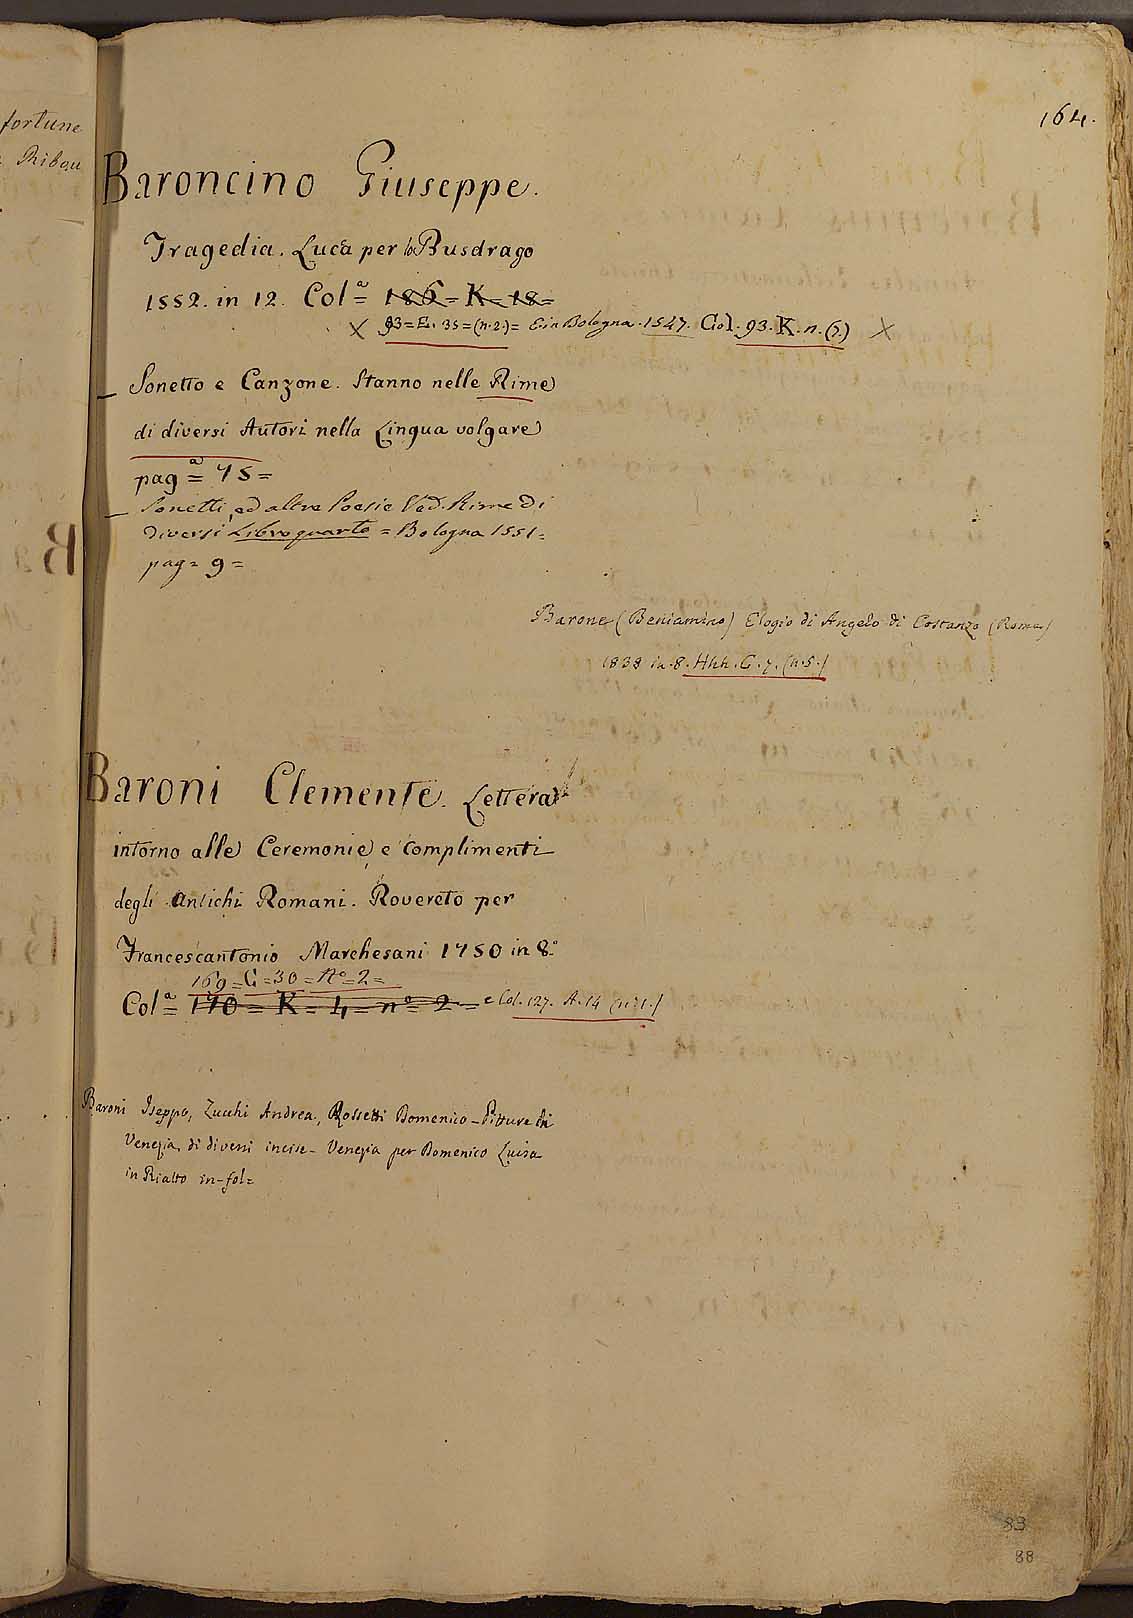 164.
fortune
Ribou
Baroncino Giuseppe.
Tragedia. Luca per lo Busdrago
1552. in 12. Col.ª = 186 = K = 18 =
X 93 = E. 35 = (n. 2.) = E in Bologna. 1547. Col. 93. K. n. (7.) X
Sonetto e Canzone. Stanno nelle Rime
di diversi Autori nella Lingua volgare
pag.ª = 75 =
Sonetti, ed altre Poesie Ved. Rime di
diversi Libro quarto = Bologna 1551 =
pag = 9 =
Barone (Beniamino) Elogio di Angelo di Costanzo (Roma)
1838 in. 8. Hhh. G. 7. (n. 5.)
Baroni Clemente. Lettera
intorno alle Ceremonie, e complimenti
degli Antichi Romani. Rovereto per
Francescantonio Marchesani 1750 in 8.º
169 = G = 30 = Nº = 2 =
Col.ª = 170 = K = 4 = nº = 2 = e Col. 127. A. 14 (n. 1.)
Baroni Iseppo, Zucchi Andrea, Rossetti Domenico - Pitture di
Venezia, di diversi incise - Venezia per Domenico Luisa
in Rialto in-fol =
83
88